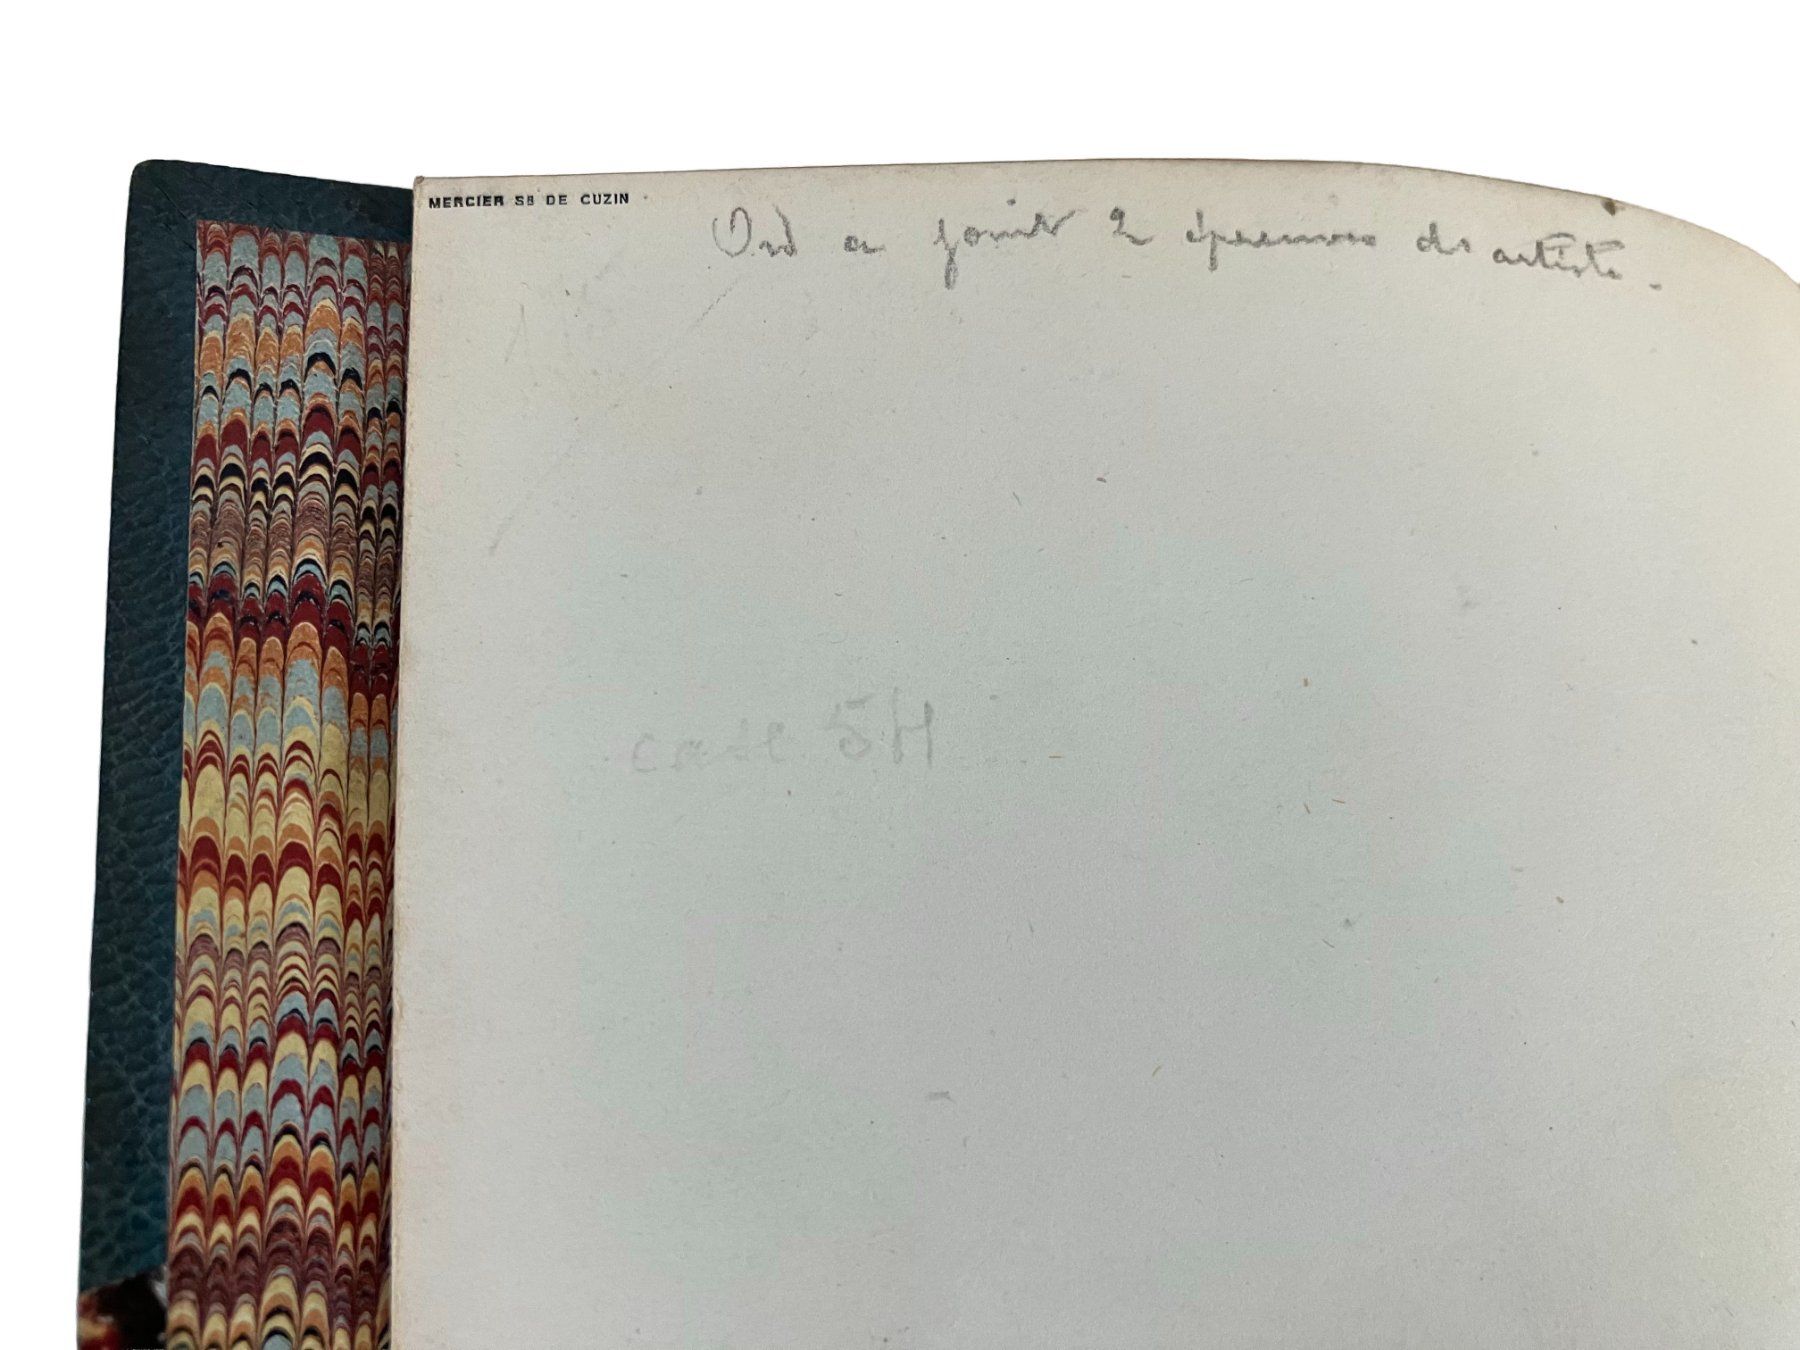 MERCIER SR DE CUZIN
On a joint 2 épreuves d'artiste.
case 5H